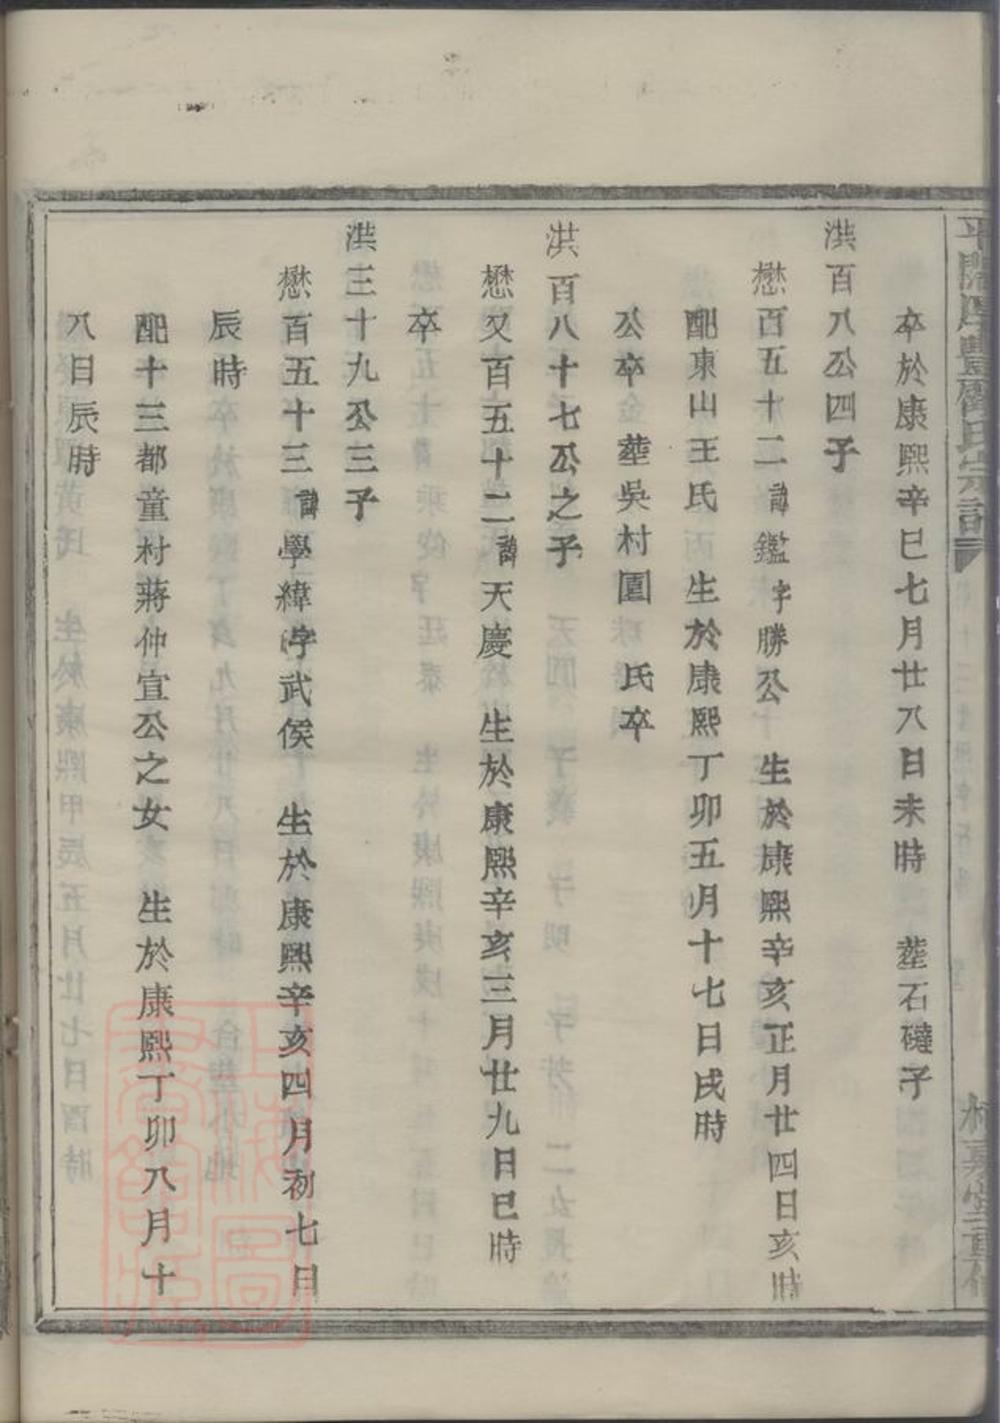 卒於康熙辛巳七月廿八日未時　塟石㙮子
洪百八公四子
懋百五十二諱鑑字勝公　生於康熙辛亥正月廿四日亥時
配東山王氏　生於康熙丁卯五月十七日戌時
公卒　塟吳村園　氏卒
洪百八十七公之子
懋又百五十二諱天慶　生於康熙辛亥三月廿九日巳時
卒
洪三十九公三子
懋百五十三諱學緯字武侯　生於康熙辛亥四月初七日
辰時
配十三都童村蔣仲宣公之女　生於康熙丁卯八月十
八日辰時